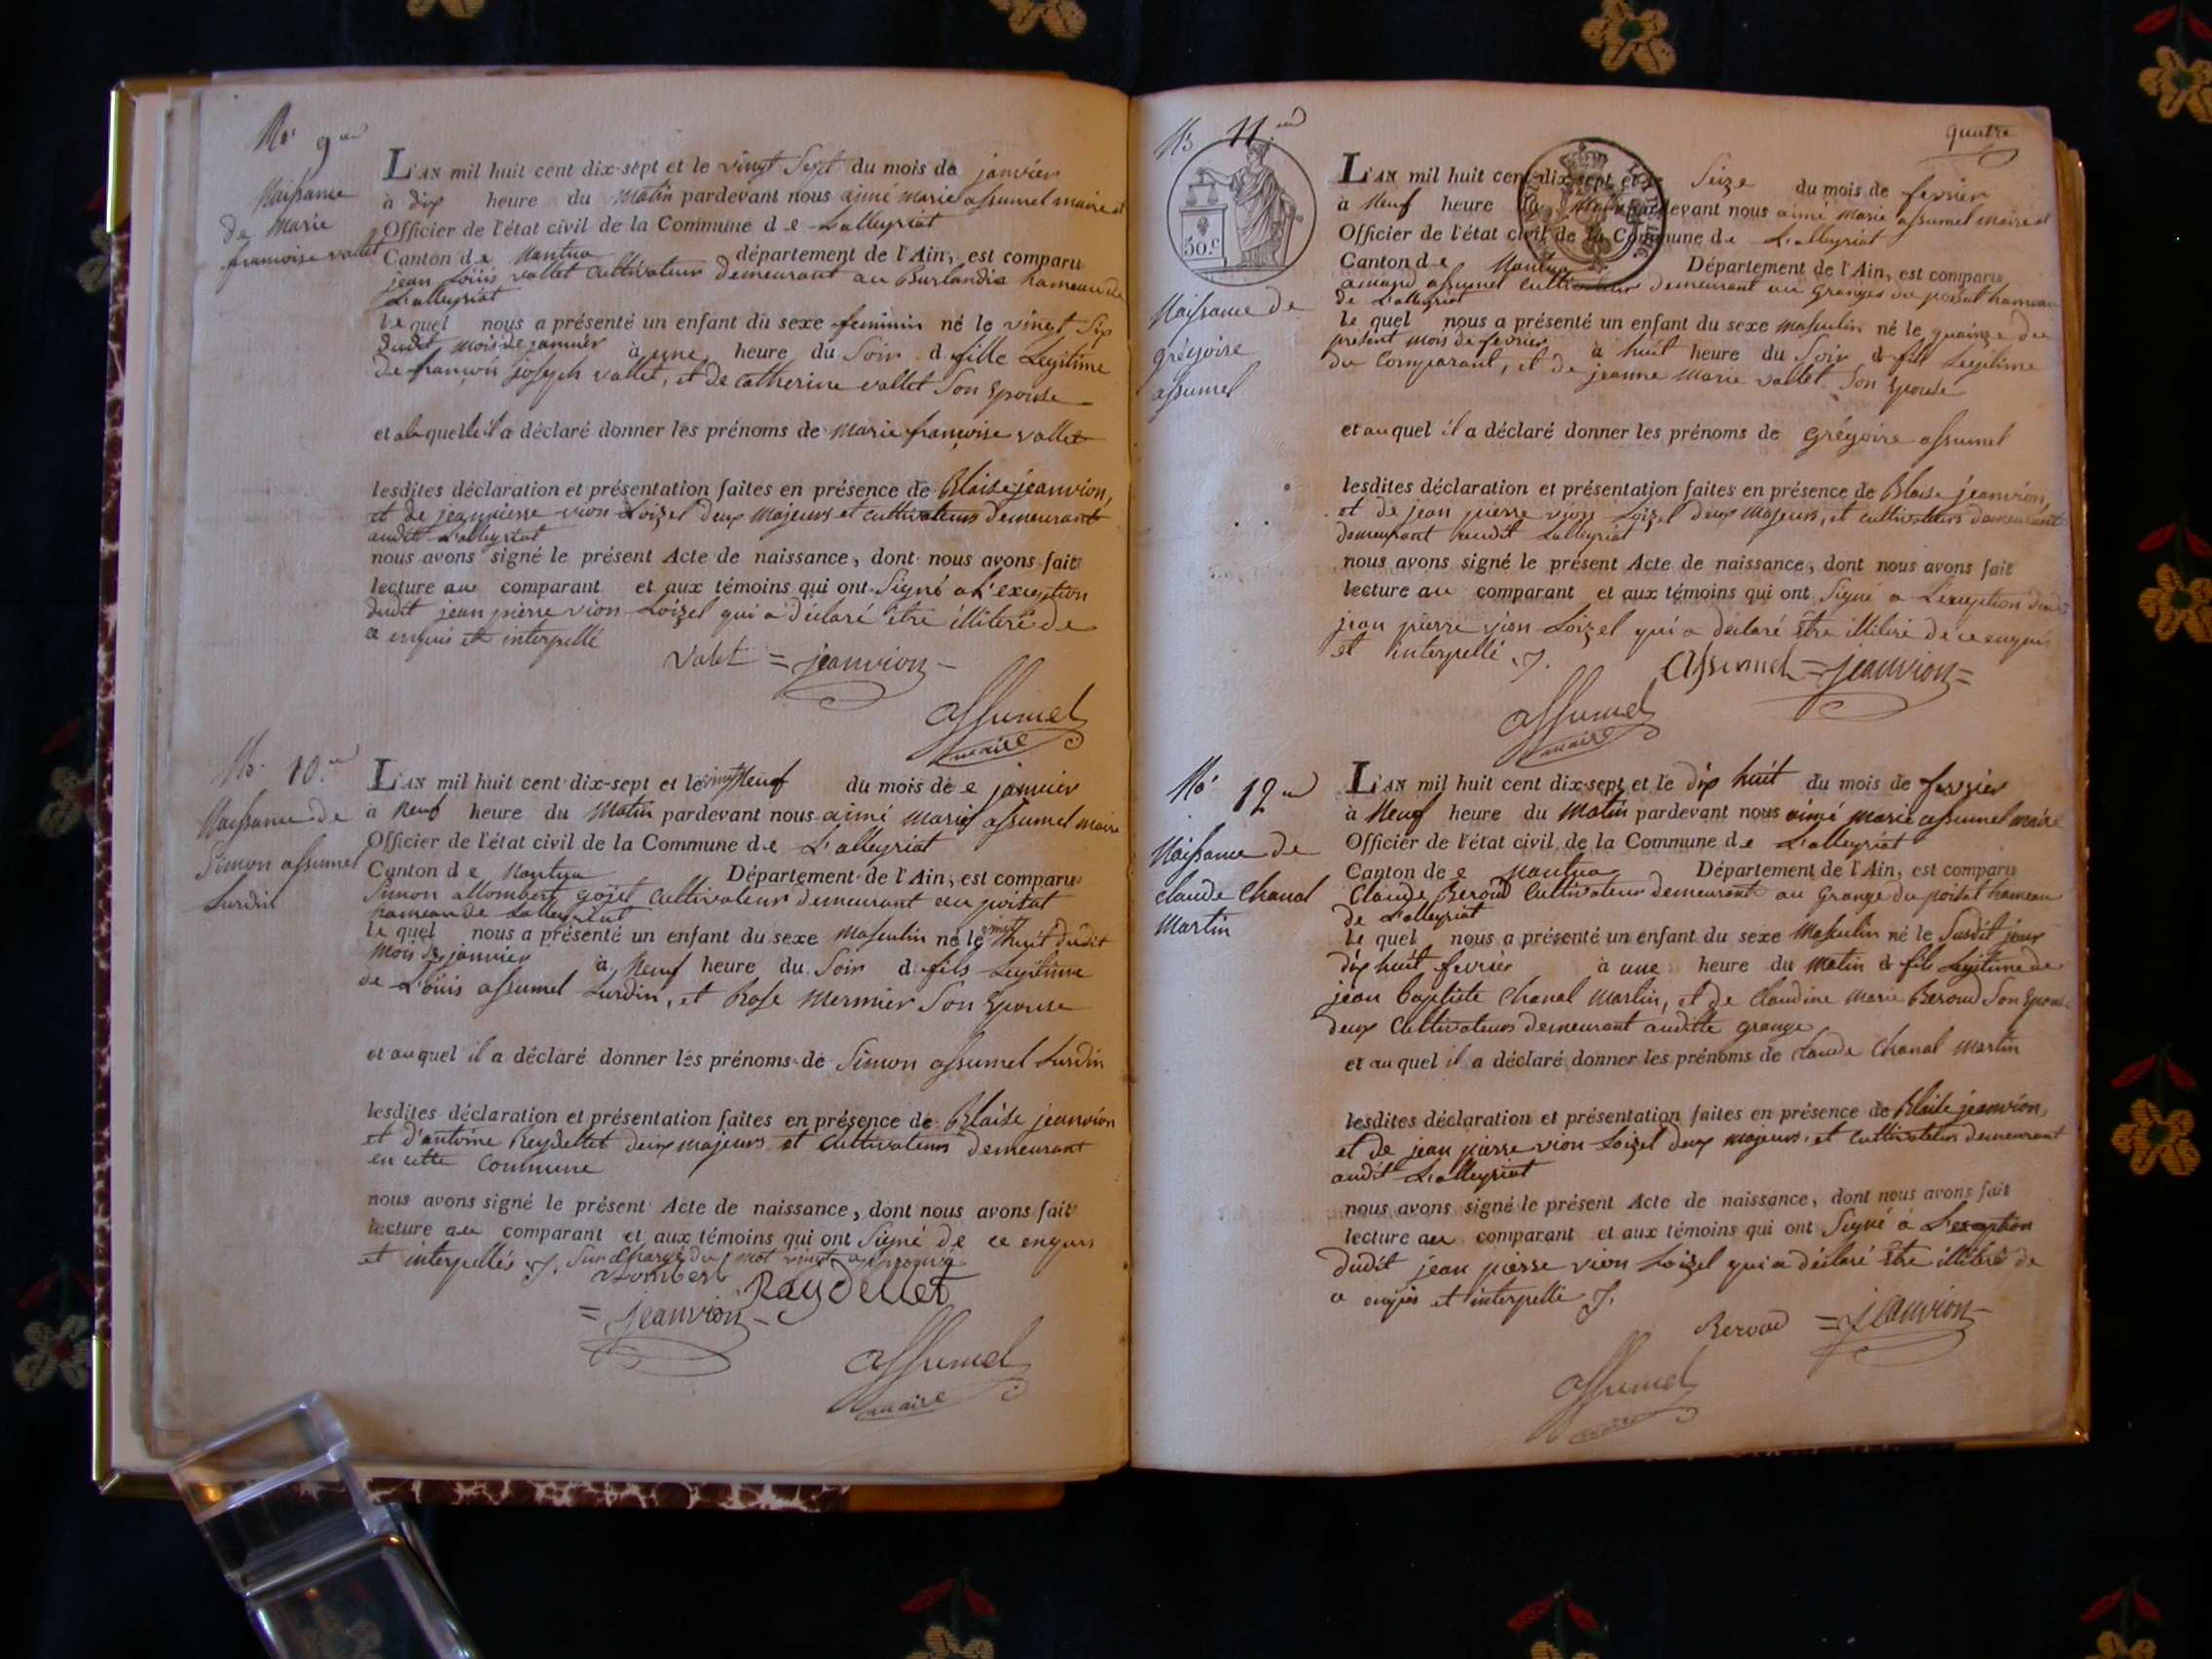 No. 9
Naissance
de Marie
francoise vallet
L'AN mil huit cent dix-sept et le vingt Sept du mois de janvier
à dix heure du Matin pardevant nous aimé marie assumel maire et
Officier de l'état civil de la Commune d e L'alleyriat
Canton d e Nantua département de l'Ain, est comparu
jean Loüis vallet Cultivateur demeurant au Burlandis hameau de
L'alleyriat
le quel nous a présenté un enfant du sexe feminin né le vingt Six
dudit mois de janvier à une heure du Soir d. fille Legitime
de françois joseph vallet, et de catherine vallet Son Epouse
et a laquelle il a déclaré donner les prénoms de marie francoise vallet
lesdites déclaration et présentation faites en présence de Blaise jeanvion,
et de jean pierre vion Loizel deux Majeurs et cultivateurs demeurant
audit L'alleyriat
nous avons signé le présent Acte de naissance, dont nous avons fait
lecture au comparant et aux témoins qui ont Signé a L'exception
dudit jean pierre vion Loizel qui a déclaré être illiteré de
ce enquis et interpellé
Valet = jeanvion =
assumel
maire
No. 10
Naissance de
Simon assumel
Surdin
L'AN mil huit cent dix-sept et le vingt Neuf du mois de e janvier
à Neuf heure du Matin pardevant nous aimé marie assumel maire
Officier de l'état civil de la Commune d e L'alleyriat
Canton d e Nantua Département de l'Ain, est comparu
Simon allombert gojet Cultivateur demeurant au poisat
hameau de Lalleyriat
le quel nous a présenté un enfant du sexe Masculin né le vingt huit dudit
mois de janvier à Neuf heure du Soir d. fils Legitime
de Loüis assumel Lurdin, et Rose Mermier Son Epouse
et auquel il a déclaré donner les prénoms de Simon assumel Lurdin
lesdites déclaration et présentation faites en présence de Blaise jeanvion
et d'antoine Reydellet deux majeurs et cultivateurs demeurant
en cette Commune
nous avons signé le présent Acte de naissance, dont nous avons fait
lecture au comparant et aux témoins qui ont Signé de ce enquis
et interpellés ./. Sur Chargé du mot vingt approuvé
= jeanvion = Raydellet
assumel
maire
No 11
50.c
Naissance de
grégoire
assumel
quatre
L'AN mil huit cent dix-sept et le Seize du mois de fevrier
à Neuf heure du Matin pardevant nous aimé marie assumel maire et
Officier de l'état civil de la Commune d e L'alleyriat
Canton d e Nantua Département de l'Ain, est comparu
assumel cultivateur demeurant au Granges du poisat hameau
de L'alleyriat
le quel nous a présenté un enfant du sexe masculin né le quainze du
present mois de fevrier à huit heure du Soir d. fils Legitime
du Comparant, et de jeanne Marie vallet Son Epouse
et auquel il a déclaré donner les prénoms de Grégoire assumel
lesdites déclaration et présentation faites en présence de Blaise jeanvion,
et de jean pierre vion Loizel deux Majeurs, et cultivateurs demeurant
demeurant audit Lalleyriat
nous avons signé le présent Acte de naissance, dont nous avons fait
lecture au comparant et aux témoins qui ont Signé a L'exception dudit
jean pierre vion Loizel qui a déclaré être illiteré de ce enquis
et interpellé ./.
Assumel = jeanvion =
assumel
maire
No 12
Naissance de
claude Chanal
Martin
L'AN mil huit cent dix-sept et le dix huit du mois de fevrier
à Neuf heure du Matin pardevant nous aimé marie assumel maire
Officier de l'état civil de la Commune d e L'alleyriat
Canton de e Nantua Département de l'Ain, est comparu
Claude Beroud Cultivateur demeurant au Grange du poisat hameau
de L'alleyriat
le quel nous a présenté un enfant du sexe Masculin né le Susdit jour
dix huit fevrier à une heure du Matin d. fils Legitime de
jean Baptiste Chanal Martin, et de Claudine Marie Beroud Son Epouse
deux Cultivateurs demeurant audite grange
et au quel il a déclaré donner les prénoms de claude Chanal Martin
lesdites déclaration et présentation faites en présence de Blaise jeanvion,
et de jean pierre vion Loizel deux majeurs, et cultivateurs demeurant
audit L'alleyriat
nous avons signé le présent Acte de naissance, dont nous avons fait
lecture au comparant et aux témoins qui ont Signé a L'exception
dudit jean pierre vion Loizel qui a déclaré être illiteré de
ce enquis et interpellé ./.
Beroud = jeanvion =
assumel
maire